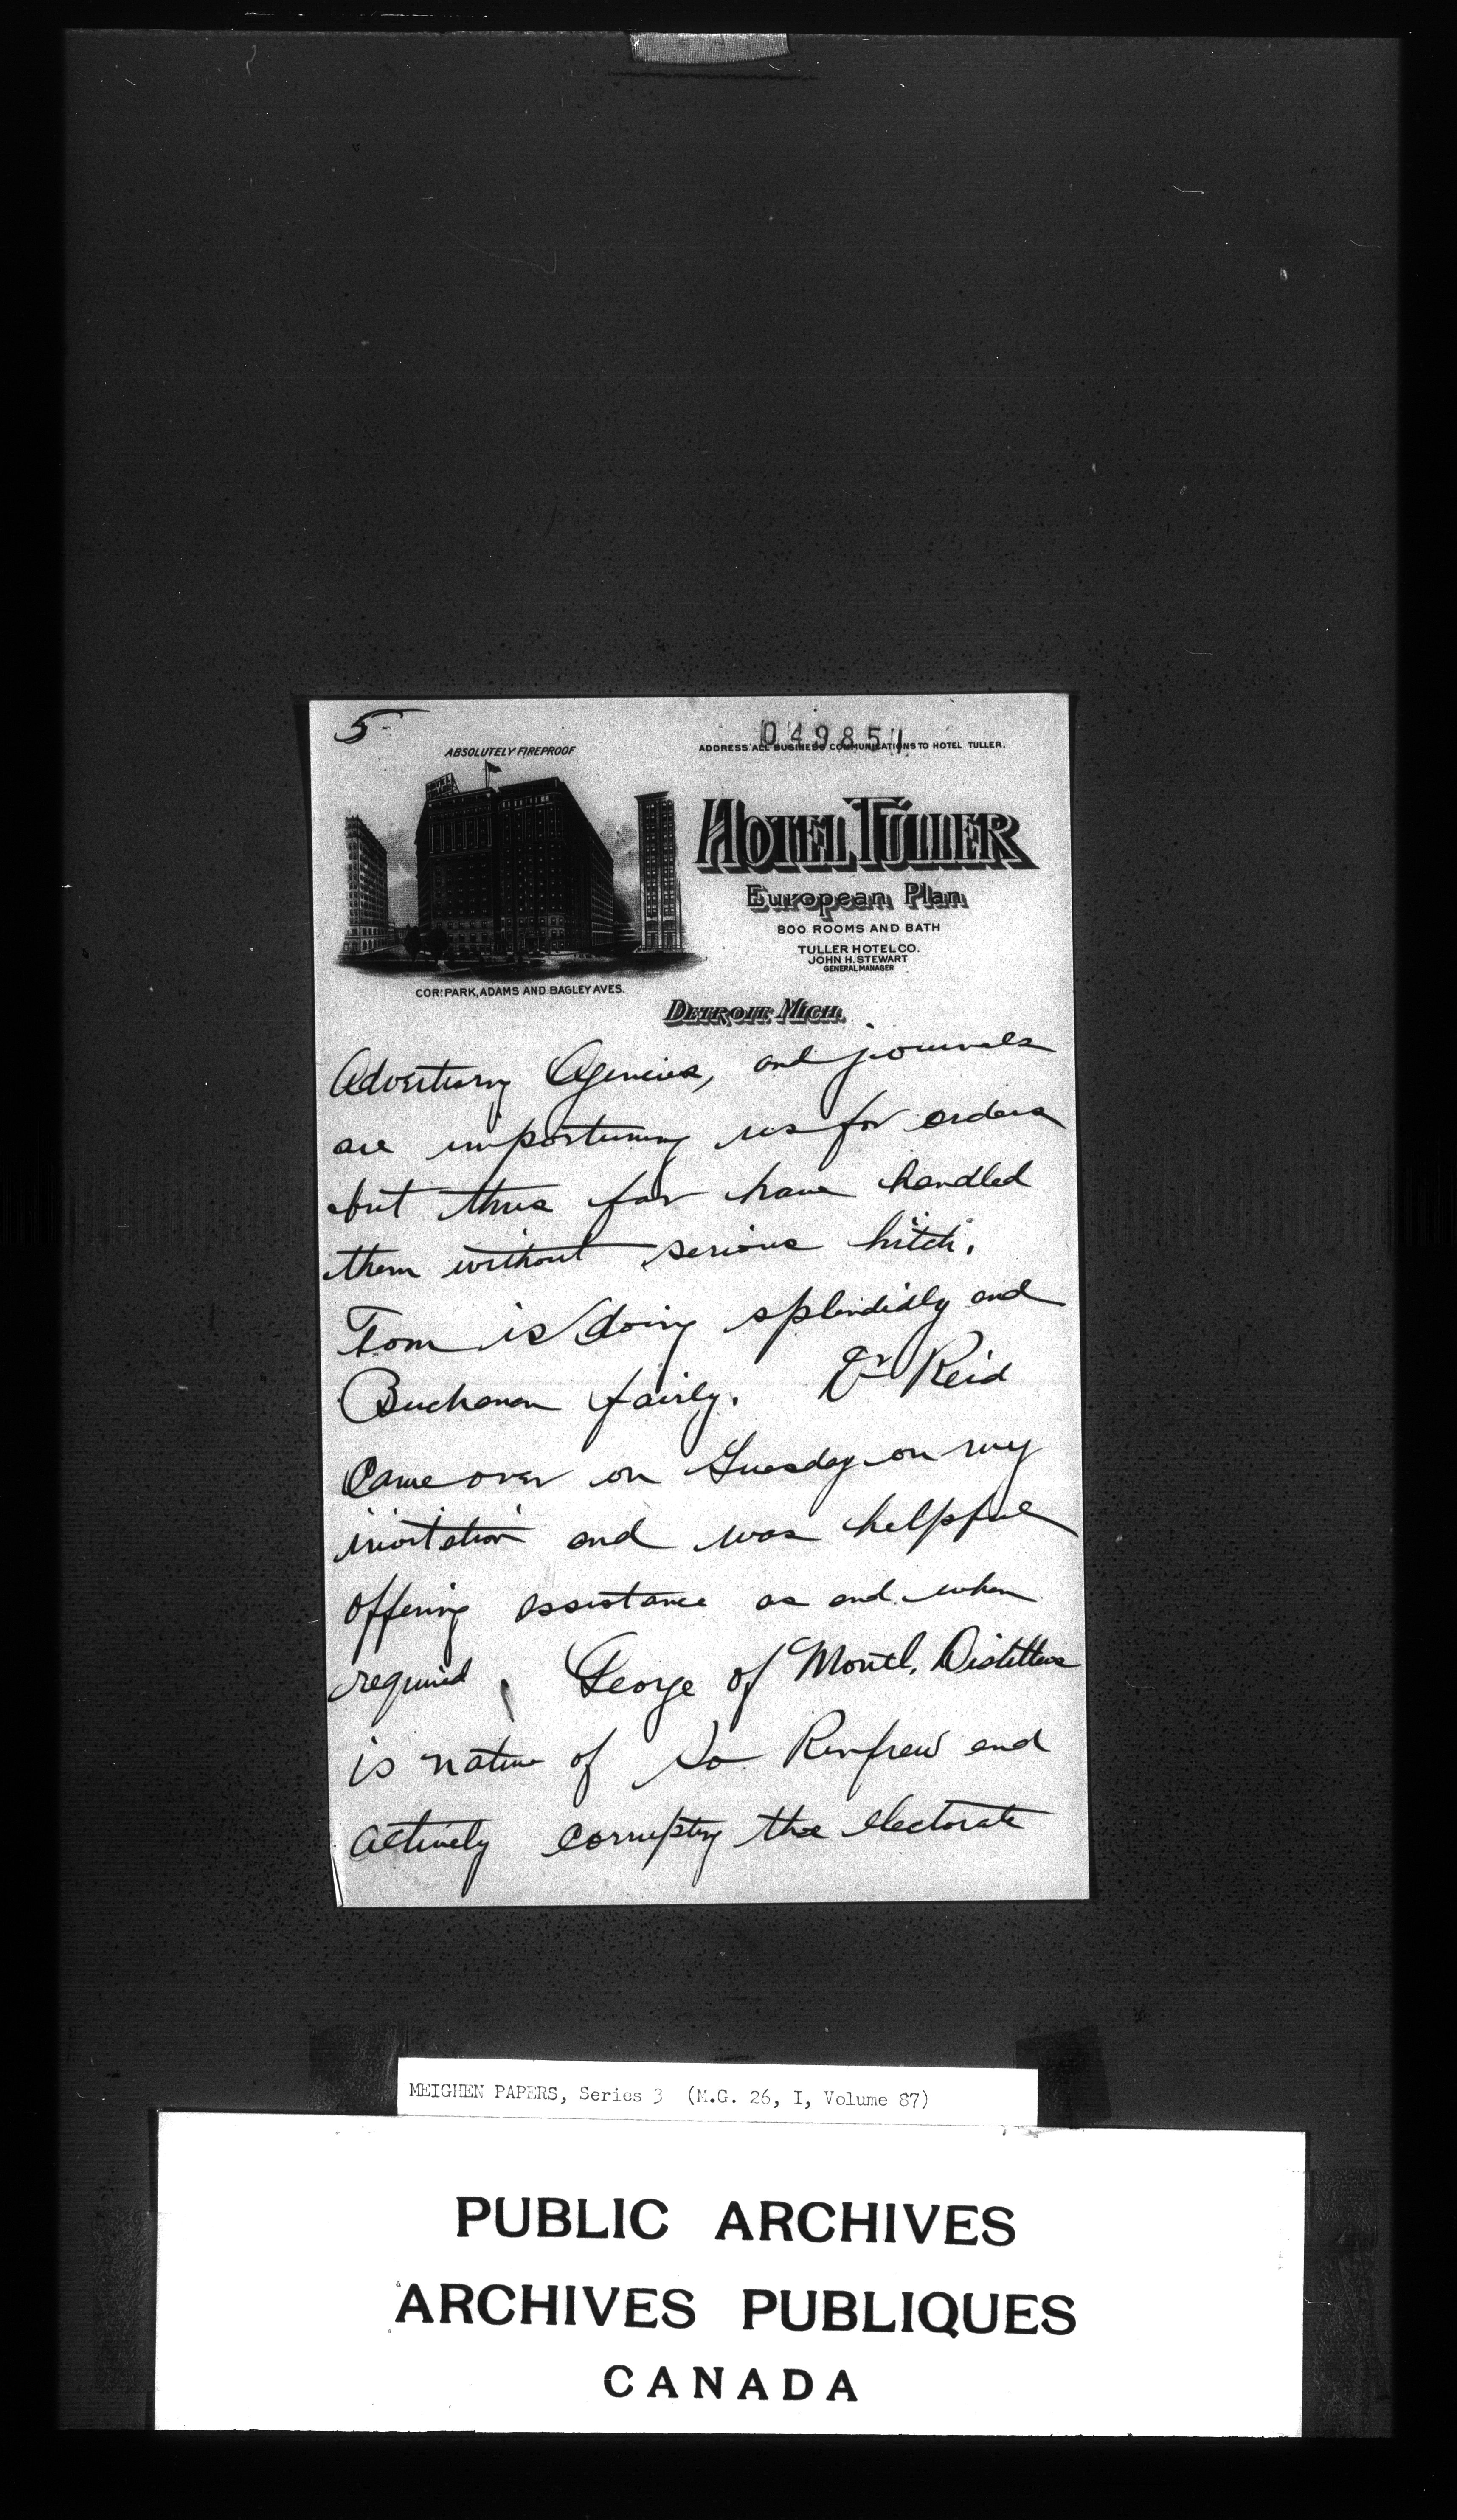 5
049851
ABSOLUTELY FIREPROOF
ADDRESS ALL BUSINESS COMMUNICATIONS TO HOTEL TULLER.
HOTEL TULLER
European Plan
800 ROOMS AND BATH
TULLER HOTEL CO.
JOHN H. STEWART
GENERAL MANAGER
COR. PARK, ADAMS AND BAGLEY AVES.
DETROIT, MICH.
Advertising Agencies, and journals
are importuning us for orders
but thus far have handled
them without serious hitch.
Tom is doing splendidly and
Buchanan fairly. Dr Reid
Came over on Tuesday on my
invitation and was helpful
offering assistance as and when
required. George of Montl. Distillers
is native of So Renfrew and
actively corrupting the electorate
MEIGHEN PAPERS, Series 3 (M.G. 26, I, Volume 87)
PUBLIC ARCHIVES
ARCHIVES PUBLIQUES
CANADA